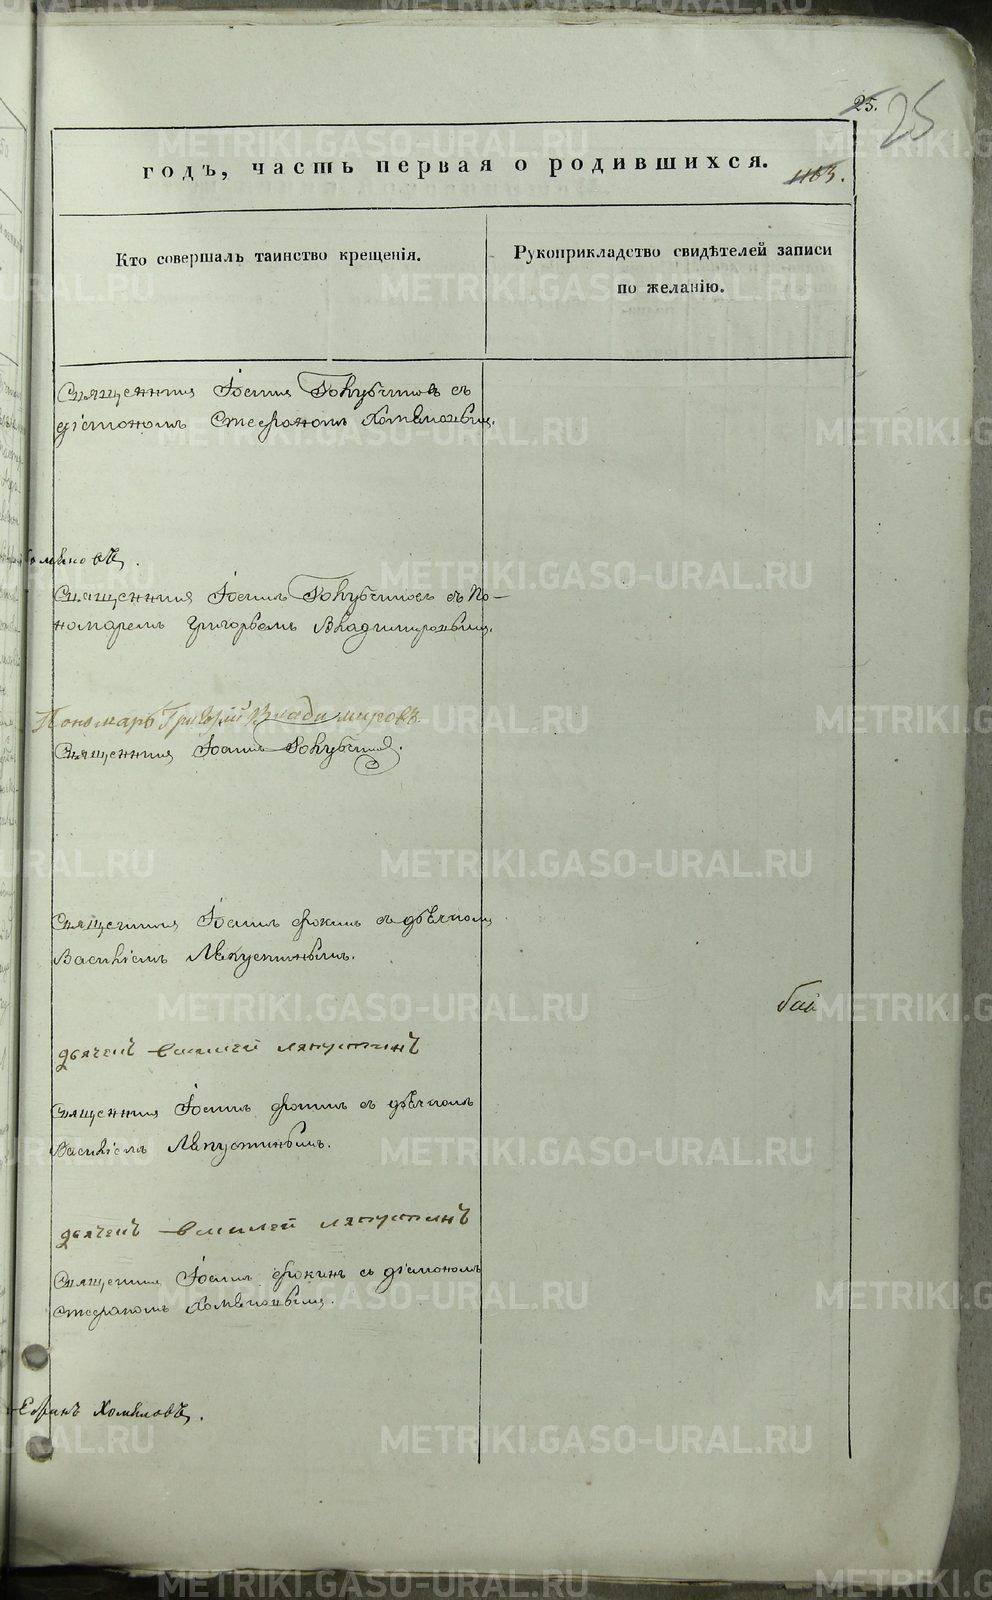 25. 25
годъ, часть первая о родившихся.
1163.
Кто совершалъ таинство крещенія.
Рукоприкладство свидѣтелей записи
по желанію.
Священникъ Іоаннъ Голубчиковъ съ
діакономъ Стефаномъ Хомяковымъ.
Священникъ Іоаннъ Голубчиковъ съ По-
номаремъ Григорьемъ Владимировымъ.
Пономарь Григорій Владимировъ
Священникъ Іоаннъ Голубчиковъ.
Священникъ Іоаннъ Фокинъ съ дьячкомъ
Василіемъ Ляпустинымъ.
дьячекъ василей ляпустинъ
Священникъ Іоаннъ Фокинъ съ дьячкомъ
Василіемъ Ляпустинымъ.
дьячекъ василей ляпустинъ
Священникъ Іоаннъ Фокинъ съ діакономъ
Стефаномъ Хомяковымъ.
METRIKI.GASO-URAL.RU